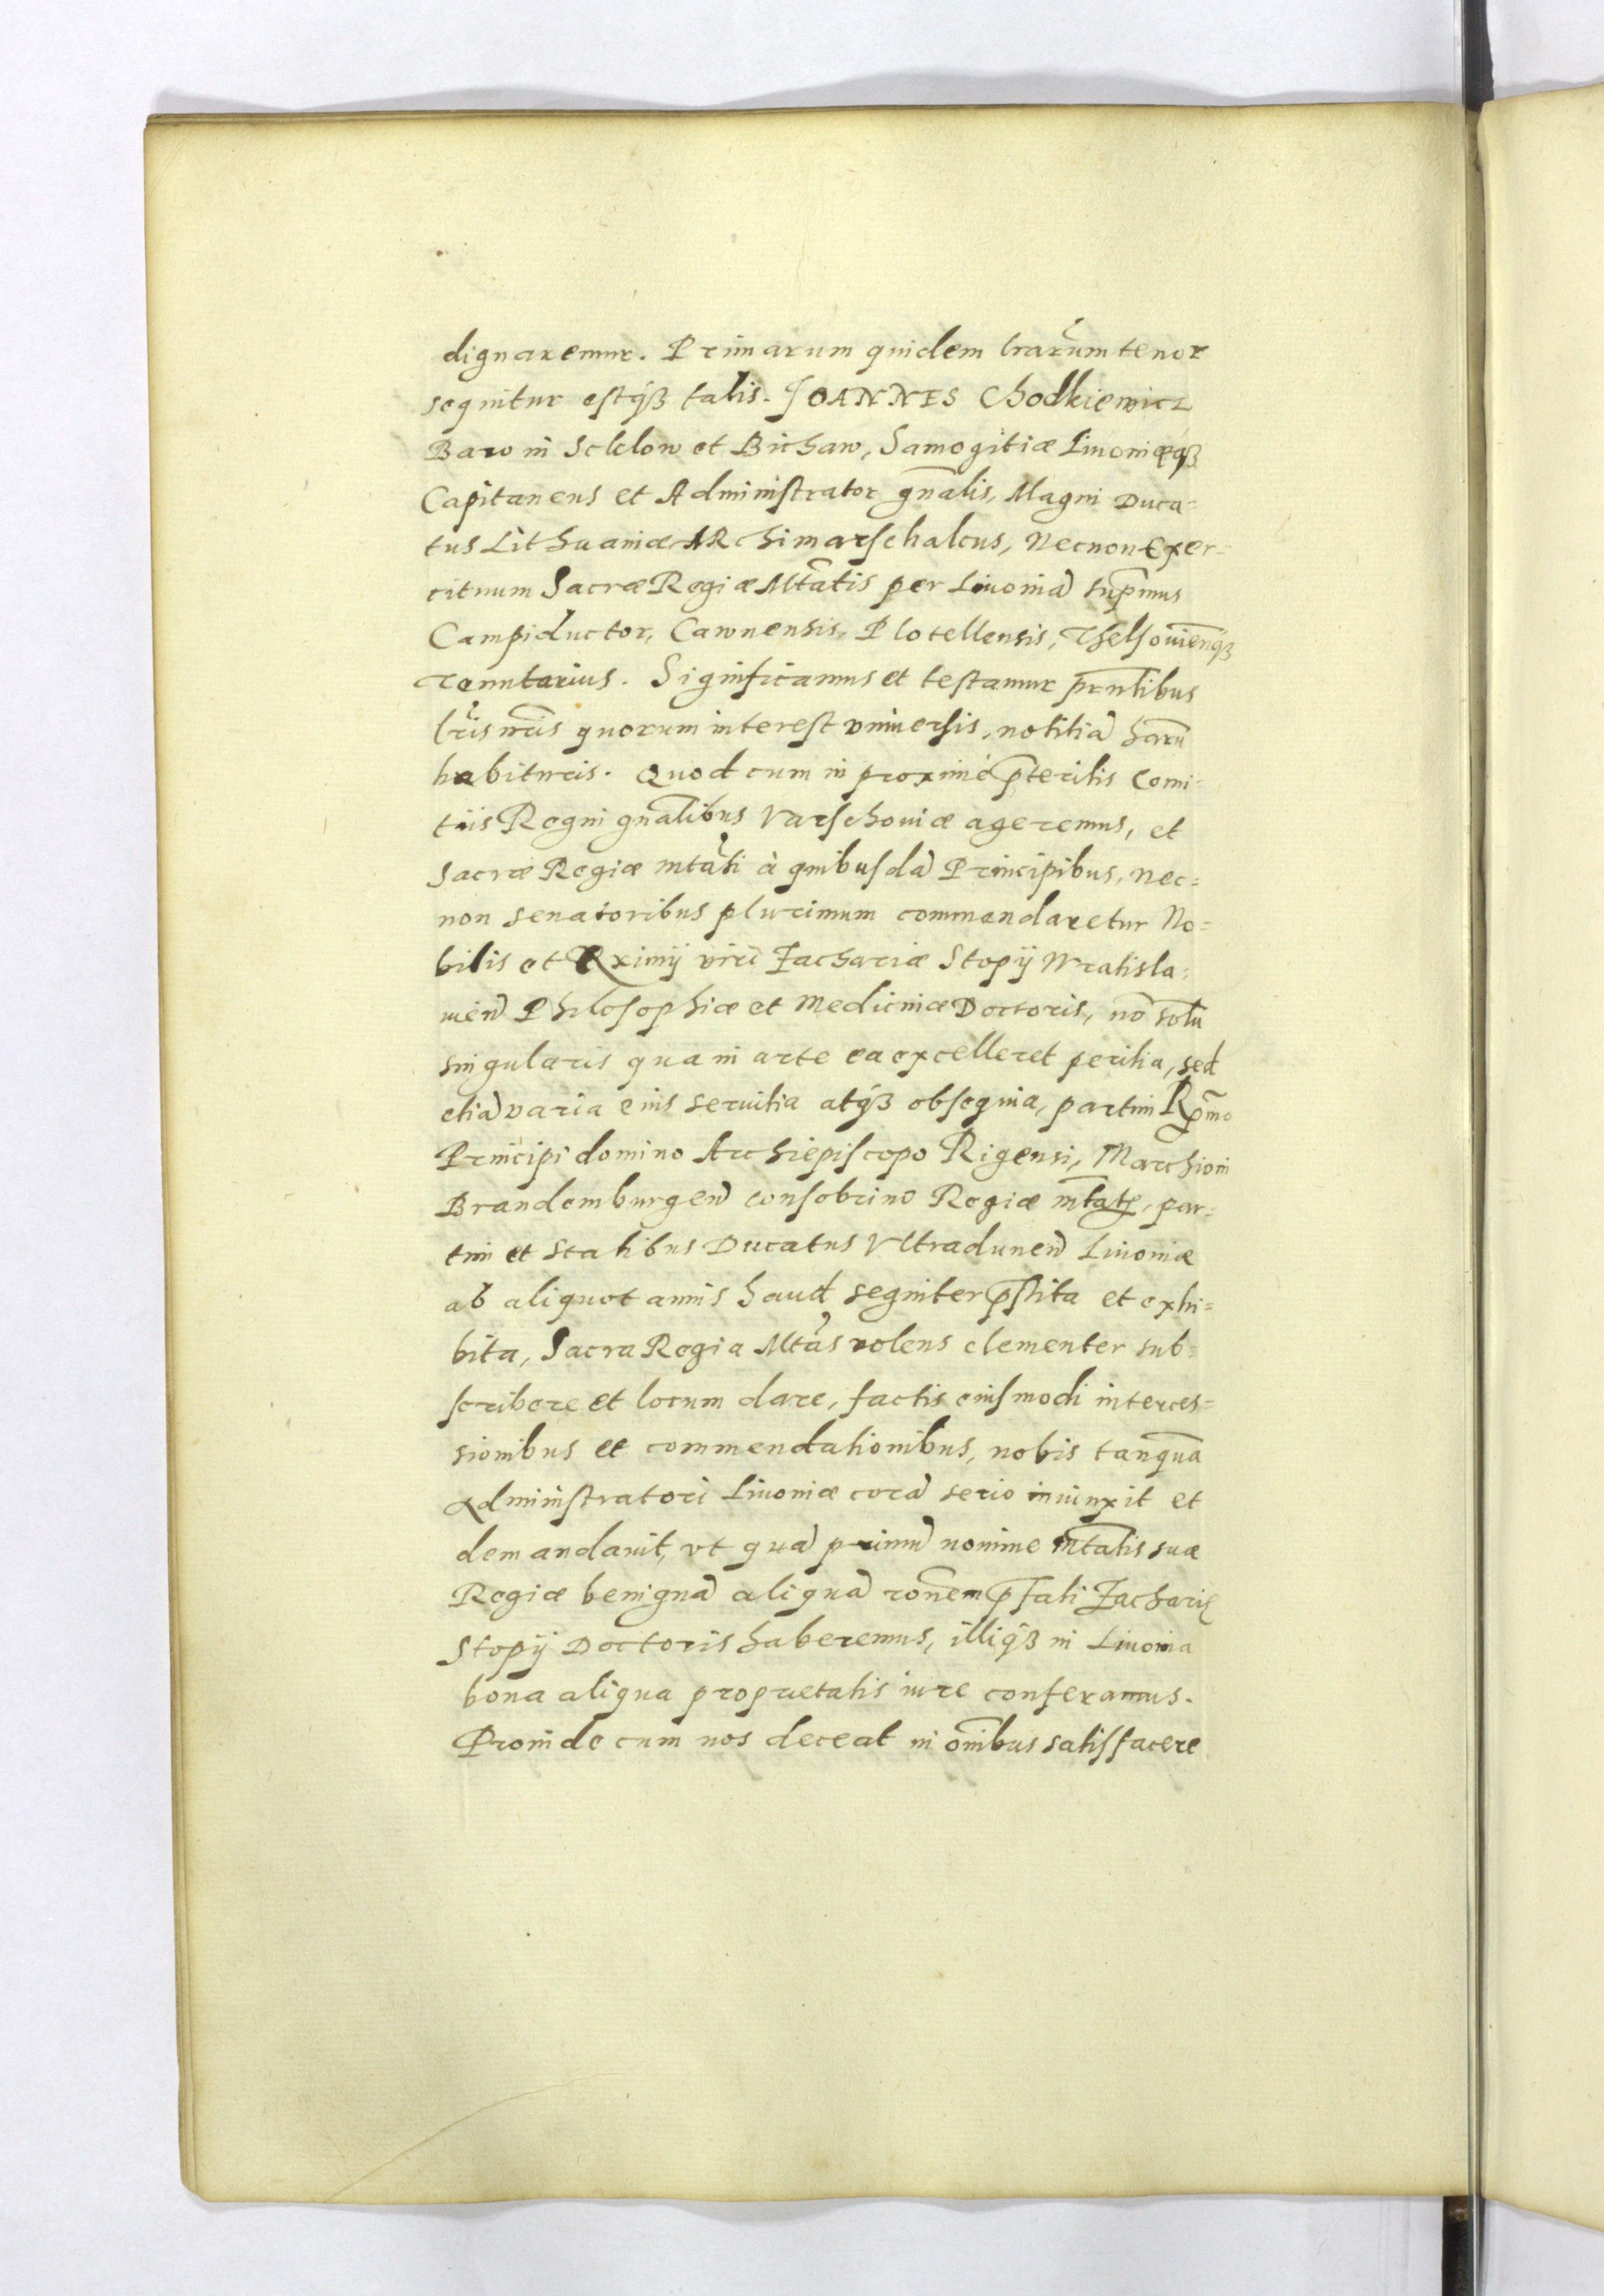 dignaremur. Primarum quidem lrarũm tenor
sequitur estqȝ talis. JOANNES Chodkiewicz
Baro in Schlow et Bichaw, Samogitiæ Liuoniæqȝ
Capitaneus et Administrator gñalis, Magni Duca=
tus Lithuaniæ ARchimarschalcus, Necnon Exer=
cituum Sacræ Regiæ Mtãtis per Liuoniã sup̃mus
Campiductor, Cawnensis, Plotellensis, Thelsouieñqȝ
Tenutarius. Significamus et testamur p̃rntibus
lr̃is nr̃is quorum interest vniuersis, notitiã harũ
habituris. Quod cum in proximè p̃teritis Comi=
tiis Regni gñalibus Varschouiæ ageremus, et
Sacræ Regiæ mtãti à quibusdã Principibus, nec=
non senatoribus plurimum commendaretur No=
bilis et Eximij viri Zachariæ Stopij Wratisla=
uieñ Philosophiæ et Medicinæ Doctoris, nõ solũ
singularis qua in arte ea excelleret peritia, sed
etiã varia eius seruitia atqȝ obsequia, partim Rp̃mo
Principi domino Archiepiscopo Rigensi, Marchioni
Brandemburgeñ consobrino Regiæ mtãtę, par=
tim et Statibus Ducatus Vltraduneñ Liuoniæ
ab aliquot annis haud segniter p̃stita et exhi=
bita, Sacra Regia Mtãs volens clementer sub=
scribere et locum dare, factis eiusmodi interces=
sionibus et commendationibus, nobis tanquã
Administratori Liuoniæ corã serio iniunxit et
demandauit, vt quã primũ nomine mtãtis suæ
Regiæ benignã aliquã rõnem p̃fati Zacharię
Stopij Doctoris haberemus, illiqȝ in Liuonia
bona aliqua proprietatis iure conferamus.
Proinde cum nos deceat in om̃ibus satisfacere